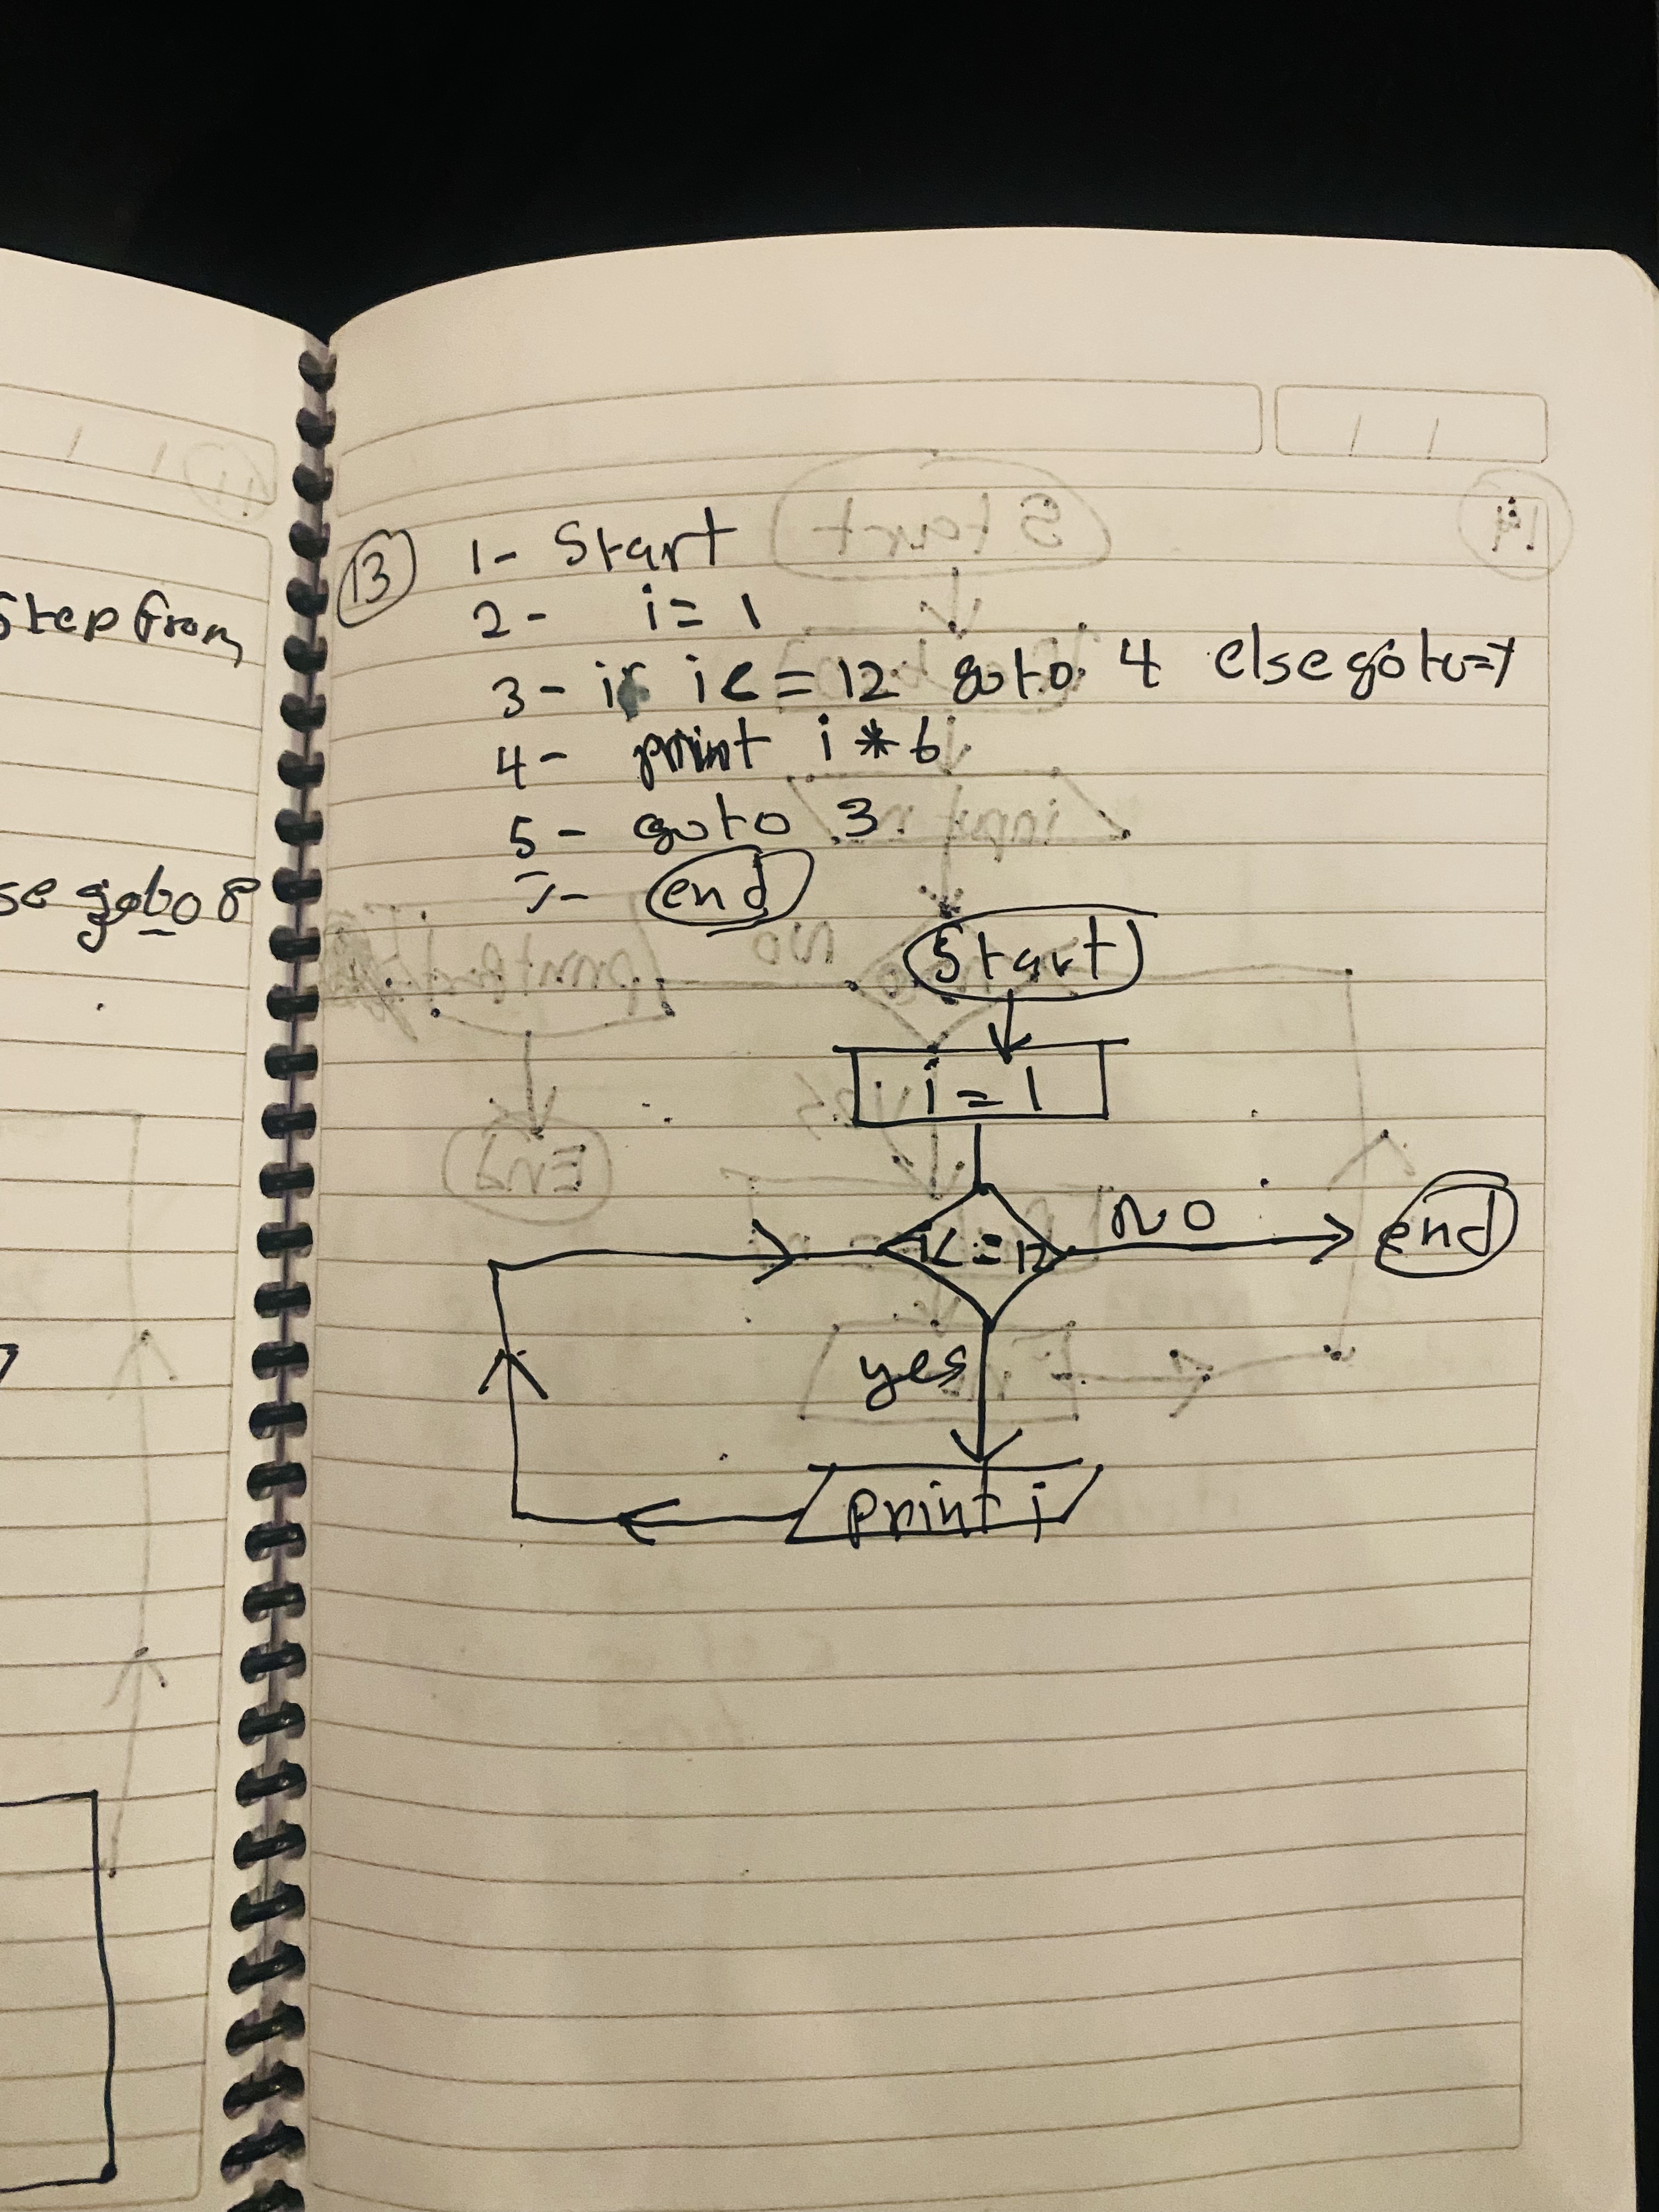 Step from
se goto 8
13
1- Start
2- i = 1
3- if i <= 12 goto 4 else goto 7
4- print i * 6
5- goto 3
7- end
Start
i = 1
i <= 12
NO
end
yes
print i